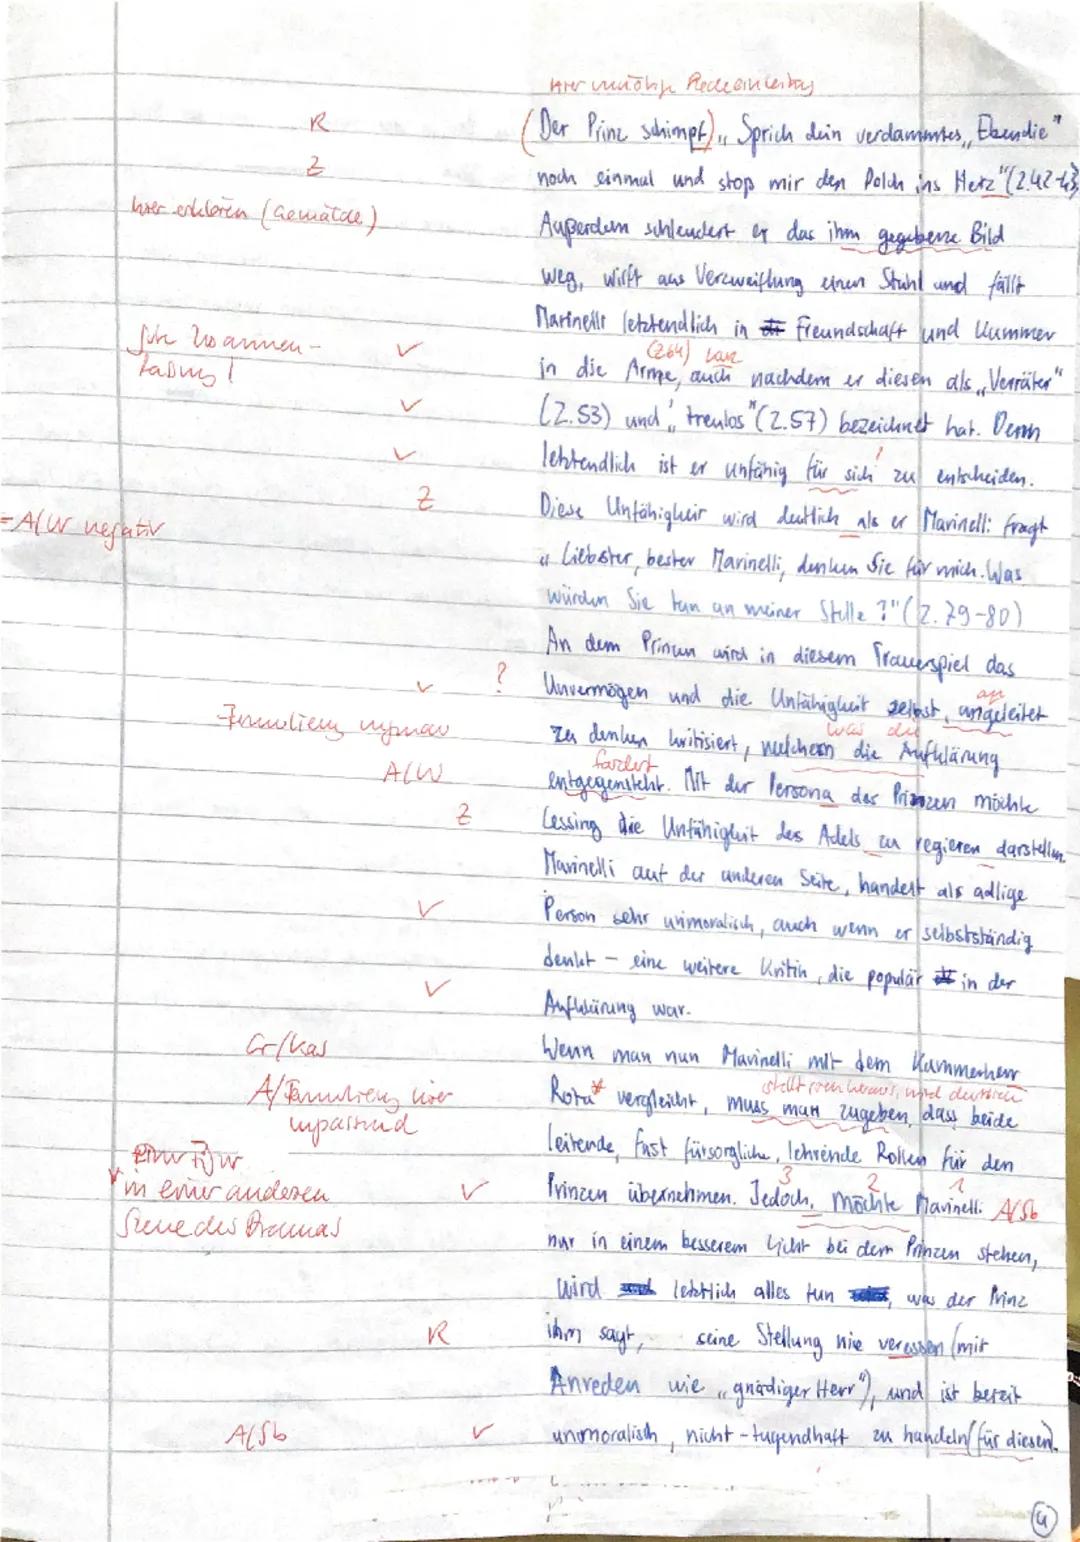 hier unnötige Redeeinleitung
R (Der Prinz schimpft) „Sprich dein verdammtes „Ebendie"
Z noch einmal und stop mir den Dolch ins Herz" (Z.42-43)
hier erklären (Gemälde) Außerdem schleudert er das ihm gegebene Bild
weg, wirft aus Verzweiflung einen Stuhl und fällt
Marinelli letztendlich in Freundschaft und Kummer
(Z64)
in die Arme, auch nachdem er diesen als „Verräter"
(Z.53) und „treulos" (Z.57) bezeichnet hat. Denn
letztendlich ist er unfähig für sich zu entscheiden.
Z Diese Unfähigkeit wird deutlich als er Marinelli fragt
= A/W negativ
„Liebster, bester Marinelli, denken Sie für mich. Was
würden Sie tun an meiner Stelle?" (Z.79-80)
An dem Prinzen wird in diesem Trauerspiel das
? Unvermögen und die Unfähigkeit selbst, angeleitet
an
Formulierung
zu denken kritisiert, welchem die Aufklärung
was die
A/W entgegensteht. Mit der Persona des Prinzen möchte
fordert
Z Lessing die Unfähigkeit des Adels zu regieren darstellen.
Marinelli auf der anderen Seite, handelt als adlige
Person sehr unmoralisch, auch wenn er selbstständig
denkt – eine weitere Kritik, die populär in der
Aufklärung war.
Gr/Kas Wenn man nun Marinelli mit dem Kammerherr
A/Formulierung hier unpassend
Rota* vergleicht, muss man zugeben, dass beide
stellt man heraus, wird deutlich
leitende, fast fürsorgliche, lehrende Rollen für den
* in einer anderen Szene des Dramas
Prinzen übernehmen. Jedoch, möchte Marinelli A/Sb
3 2 1
nur in einem besserem Licht bei dem Prinzen stehen,
wird letztlich alles tun, was der Prinz
R ihm sagt, seine Stellung nie veressen (mit
Anreden wie „gnädiger Herr"), und ist bereit
A/Sb unmoralisch, nicht-tugendhaft zu handeln (für diesen).
4